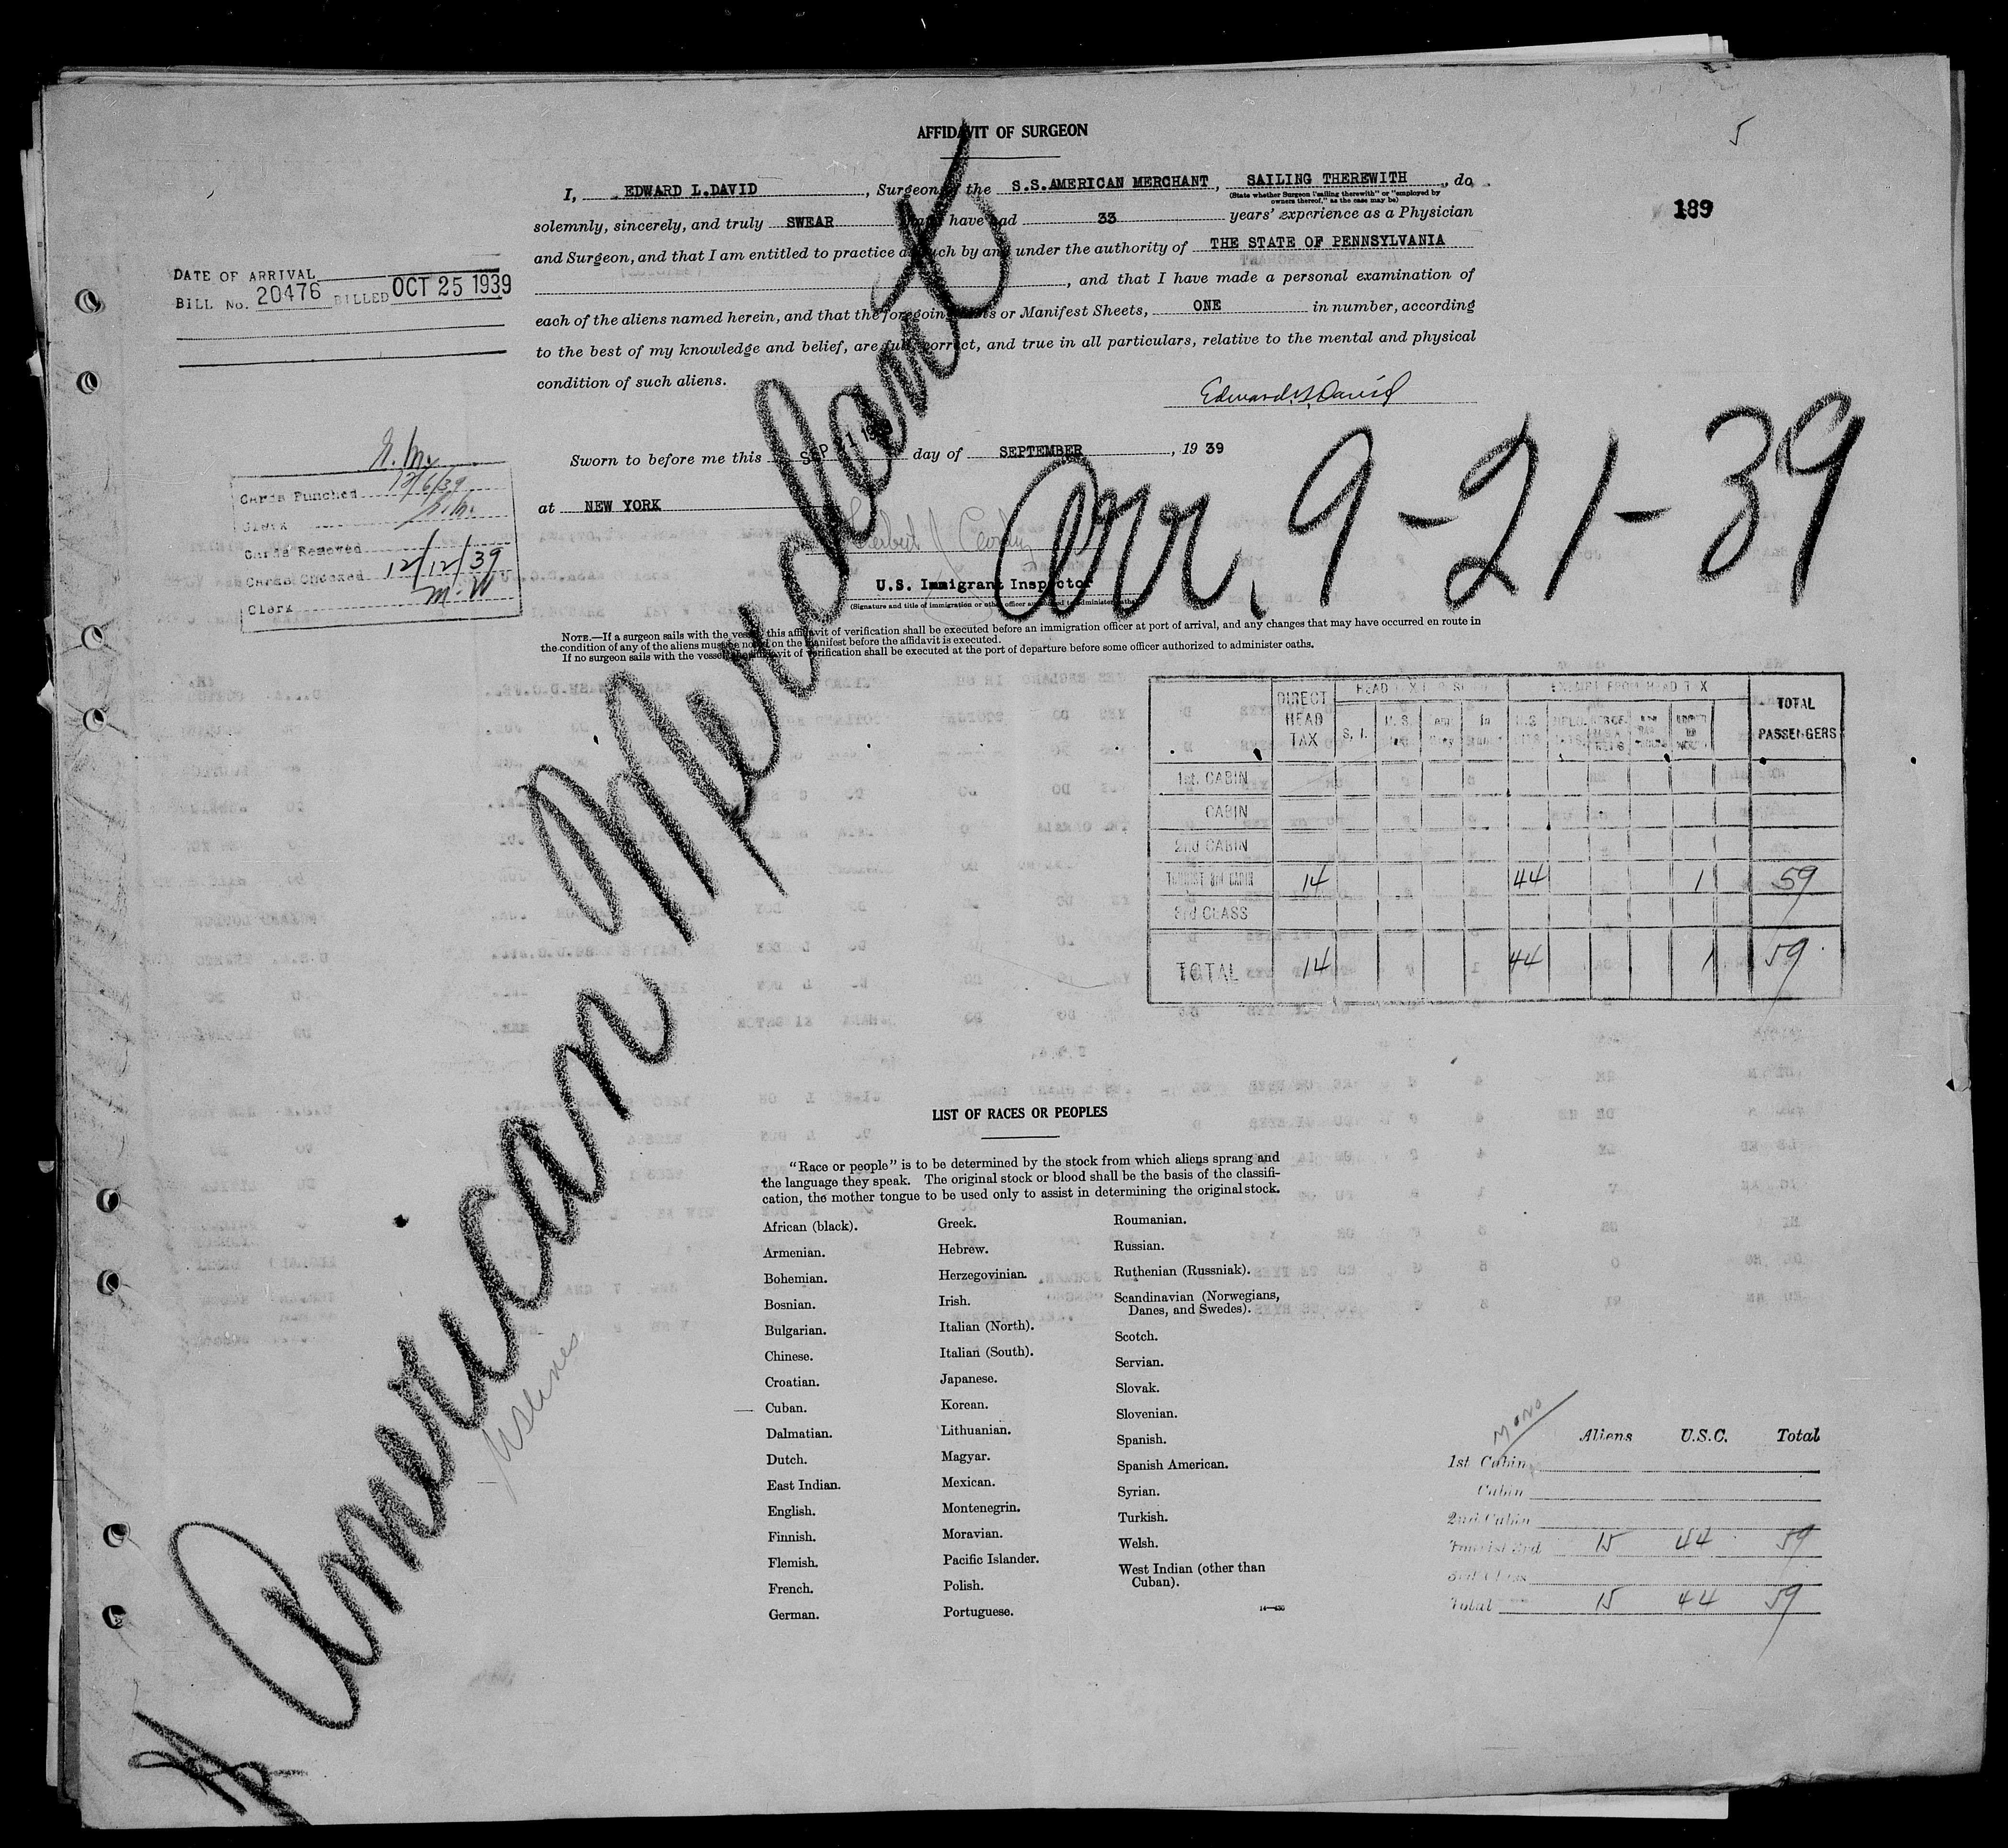 5
AFFIDAVIT OF SURGEON
I, EDWARD L.DAVID, Surgeon of the S.S.AMERICAN MERCHANT, SAILING THEREWITH, do
(State whether Surgeon "sailing therewith" or "employed by
owners thereof," as the case may be)
189
solemnly, sincerely, and truly SWEAR that I have had 33 years' experience as a Physician
and Surgeon, and that I am entitled to practice as such by and under the authority of THE STATE OF PENNSYLVANIA
, and that I have made a personal examination of
each of the aliens named herein, and that the foregoing Lists or Manifest Sheets, ONE in number, according
to the best of my knowledge and belief, are full, correct, and true in all particulars, relative to the mental and physical
condition of such aliens.
Edward L. David
DATE OF ARRIVAL
BILL No. 20476 BILLED OCT 25 1939
Sworn to before me this SEP 21 1939 day of SEPTEMBER, 19 39
at NEW YORK
U.S. Immigrant Inspector
(Signature and title of immigration or other officer authorized to administer oaths)
Arr. 9-21-39
American Merchant
Cards Punched 12/6/39
Clerk
Cards Removed
Cards Indexed 12/12/39
Clerk M.W
NOTE.—If a surgeon sails with the vessel, this affidavit of verification shall be executed before an immigration officer at port of arrival, and any changes that may have occurred en route in
the condition of any of the aliens must be noted on the manifest before the affidavit is executed.
If no surgeon sails with the vessel, the affidavit of verification shall be executed at the port of departure before some officer authorized to administer oaths.
DIRECT HEAD TAX
EXEMPT FROM HEAD TAX
TOTAL PASSENGERS
S. I.
1st. CABIN
CABIN
2nd CABIN
TOURIST 3rd CABIN 14 44 1 59
3rd CLASS
TOTAL 14 44 1 59
LIST OF RACES OR PEOPLES
"Race or people" is to be determined by the stock from which aliens sprang and
the language they speak. The original stock or blood shall be the basis of the classifi-
cation, the mother tongue to be used only to assist in determining the original stock.
African (black).
Armenian.
Bohemian.
Bosnian.
Bulgarian.
Chinese.
Croatian.
Cuban.
Dalmatian.
Dutch.
East Indian.
English.
Finnish.
Flemish.
French.
German.
Greek.
Hebrew.
Herzegovinian.
Irish.
Italian (North).
Italian (South).
Japanese.
Korean.
Lithuanian.
Magyar.
Mexican.
Montenegrin.
Moravian.
Pacific Islander.
Polish.
Portuguese.
Roumanian.
Russian.
Ruthenian (Russniak).
Scandinavian (Norwegians,
Danes, and Swedes).
Scotch.
Servian.
Slovak.
Slovenian.
Spanish.
Spanish American.
Syrian.
Turkish.
Welsh.
West Indian (other than
Cuban).
14—430
Mono
Aliens U.S.C. Total
1st Cabin
Cabin
2nd Cabin
Tourist 3rd 15 44 59
3rd Class
Total 15 44 59